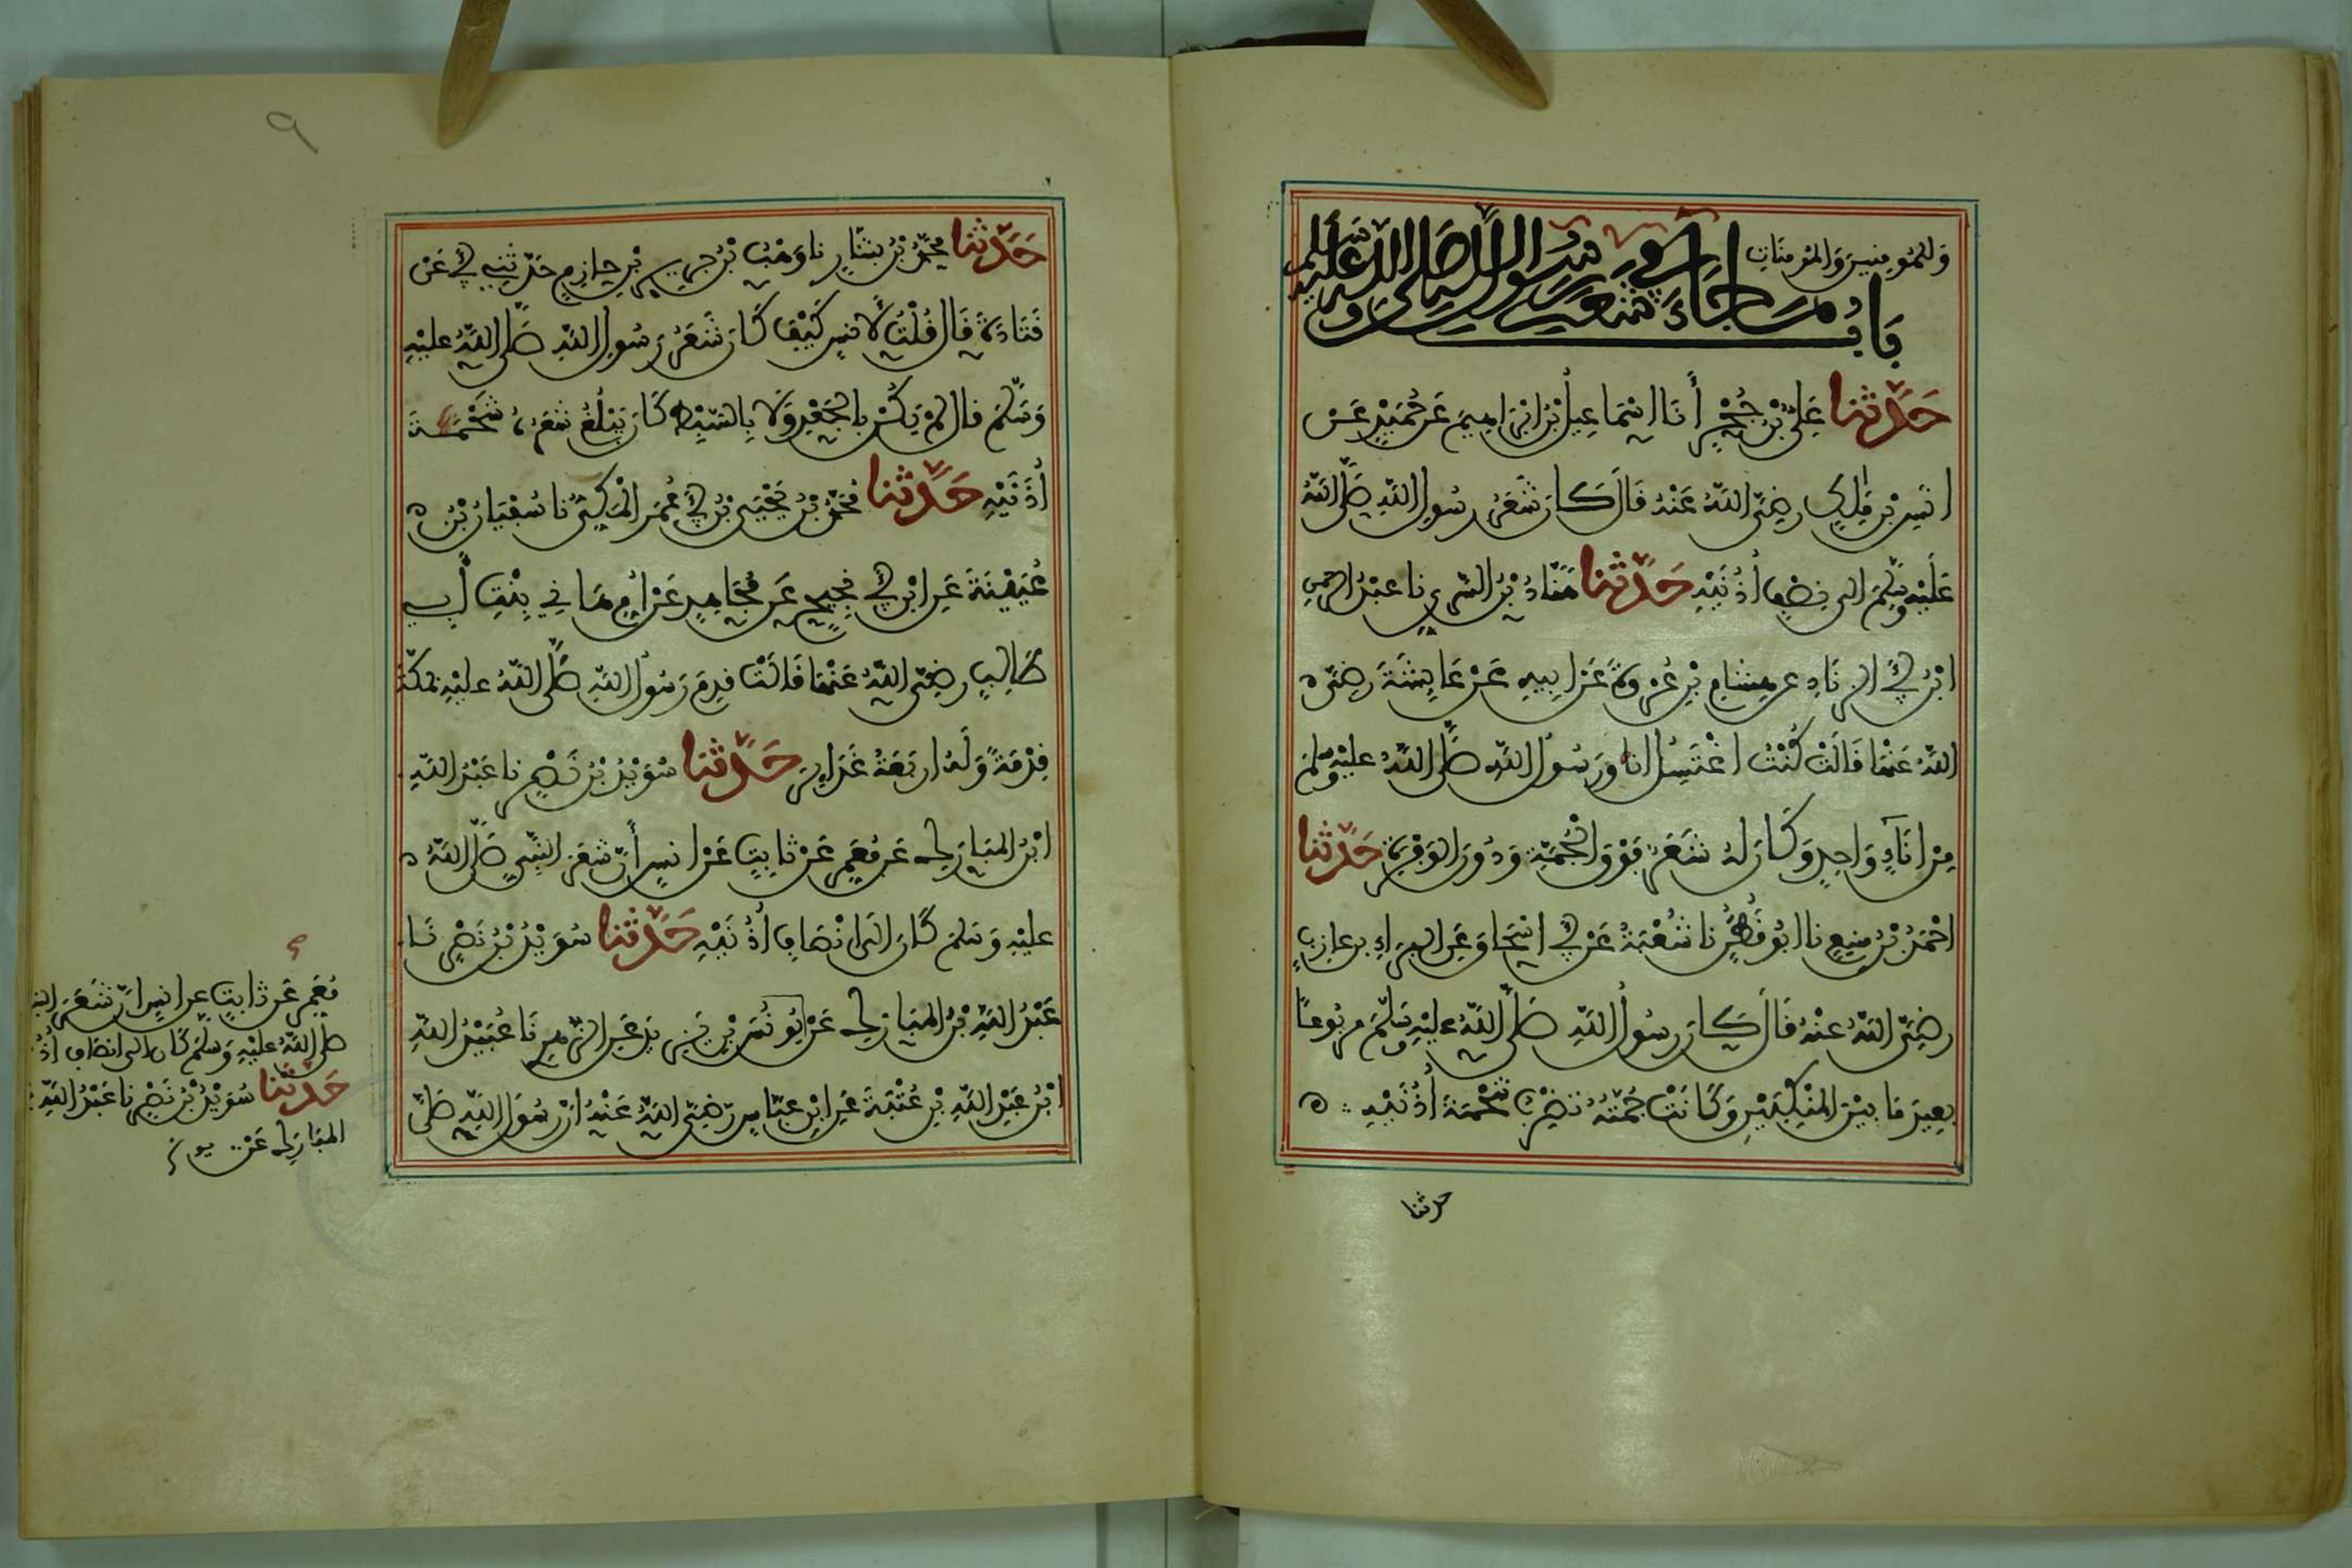 وَللمُومِنِينَ وَالمُومِنَاتِ
بَابُ مَا جَاءَ فِي شَعَرِ رَسُولِ اللهِ صَلَّى اللهُ عَلَيْهِ وَسَلَّمَ
حَدَّثَنَا عَلِيُّ بْنُ حُجْرٍ أَنَا اِسْمَاعِيلُ بْنُ اِبْرَاهِيمَ عَنْ حُمَيْدٍ عَنْ
انَسِ بْنِ مَالِكٍ رَضِيَ اللهُ عَنْهُ قَالَ كَانَ شَعَرُ رَسُولِ اللهِ صَلَّى اللهُ
عَلَيْهِ وَسَلَّمَ الَى نِصْفِ أُذُنَيْهِ حَدَّثَنَا هَنَّادُ بْنُ السَّرِيِّ نا عَبْدُ الرَّحْمٰنِ
ابْنُ أَبِي الزِّنَادِ عَنْ هِشَامِ بْنِ عُرْوَةَ عَنْ ابِيهِ عَنْ عَايِشَةَ رَضِيَ
اللهُ عَنْهَا قَالَتْ كُنْتُ اغْتَسِلُ انَا وَرَسُولُ اللهِ صَلَّى اللهُ عَلَيْهِ وَسَلَّمَ
مِنْ انَاءٍ وَاحِدٍ وَكَانَ لَهُ شَعَرٌ فَوْقَ الْجُمَّةِ وَدُونَ الوَفْرَةِ حَدَّثَنَا
احْمَدُ بْنُ مَنِيعٍ نَا ابُو قَطَنٍ نا شُعْبَةُ عَنْ أَبِي اسْحَاقَ عَنِ البَرَاءِ بن عازبٍ
رَضِيَ اللهُ عَنْهُ قَالَ كَانَ رَسُولُ اللهِ صَلَّى اللهُ عَلَيْهِ وَسَلَّمَ مَرْبُوعًا
بَعِيدَ مَا بَيْنَ المَنْكِبَيْنِ وَكَانَتْ جُمَّتُهُ تَضْرِبُ شَحْمَةَ أُذُنَيْهِ
حدثنا
حَدَّثَنَا مُحَمَّدُ بْنُ بَشَّارٍ نا وَهْبُ بْنُ جَرِيرِ بْنِ حَازِمٍ حَدَّثَنِي أَبِي عَنْ
قَتَادَةَ قَالَ قُلْتُ لأَنَسٍ كَيْفَ كَانَ شَعَرُ رَسُولِ اللهِ صَلَّى اللهُ عَلَيْهِ
وَسَلَّمَ قَالَ لَمْ يَكُنْ بِالْجَعْدِ وَلَا بِالسَّبْطِ كَانَ يَبْلُغُ شَعَرُهُ شَحْمَةَ
أُذُنَيْهِ حَدَّثَنَا مُحَمَّدُ بْنُ يَحْيَى بْنُ أَبِي عُمَرَ الْمَكِّيُّ نا سُفْيَانُ بْنُ
عُيَيْنَةَ عَنِ ابْنِ أَبِي نَجِيحٍ عَنْ مُجَاهِدٍ عَنْ أُمِّ هَانِي بِنْتِ أَبِي
طَالِبٍ رَضِيَ اللهُ عَنْهَا قَالَتْ قَدِمَ رَسُولُ اللهِ صَلَّى اللهُ عَلَيْهِ بمَكَّةَ
قِدْمَةً وَلَهُ ارْبَعَةُ غَدَايِرَ حَدَّثَنَا سُوَيْدُ بْنُ نَصْرٍ نا عَبْدُ اللهِ
ابْنُ المُبَارَكِ عَنْ مَعْمَرٍ عَنْ ثَابِتٍ عَنْ انَسٍ أَنَّ شَعَرَ النَّبِيِّ صَلَّى اللهُ
عَلَيْهِ وَسَلَّمَ كَانَ الَى انْصَافِ أُذُنَيْهِ حَدَّثَنَا سُوَيْدُ بْنُ نَصْرٍ نَا
عَبْدُ اللهِ بْنُ المُبَارَكِ عَنْ يُونُسَ بْنِ يَزِيدَ عَنِ الزُّهْرِيِّ نَا عُبَيْدُ اللهِ
ابْنُ عَبْدِ اللهِ بْنِ عُتْبَةَ عَنِ ابْنِ عَبَّاسٍ رَضِيَ اللهُ عَنْهُ انَّ رَسُولَ اللهِ صَلَّى
مَعْمَرٍ عَنْ ثَابِتٍ عن انَسٍ انَّ شَعَرَ
صلى اللهُ عَلَيْهِ وَسَلَّمَ كَانَ الى انصافِ
حَدَّثَنَا سُوَيْدُ بْنُ نَصْرٍ نا عَبْدُ اللهِ
المُبَارَكِ عَنْ
٩